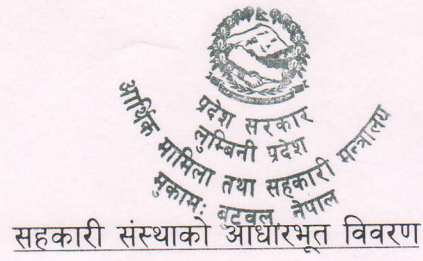 प्रदेश सरकार
लुम्बिनी प्रदेश
आर्थिक मामिला तथा सहकारी मन्त्रालय
मुकामः बुटवल, नेपाल
सहकारी संस्थाको आधारभूत विवरण